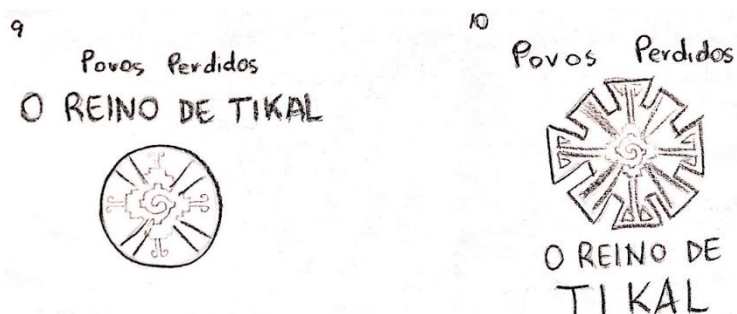 9
Povos Perdidos
O REINO DE TIKAL
10
Povos Perdidos
O REINO DE
TIKAL